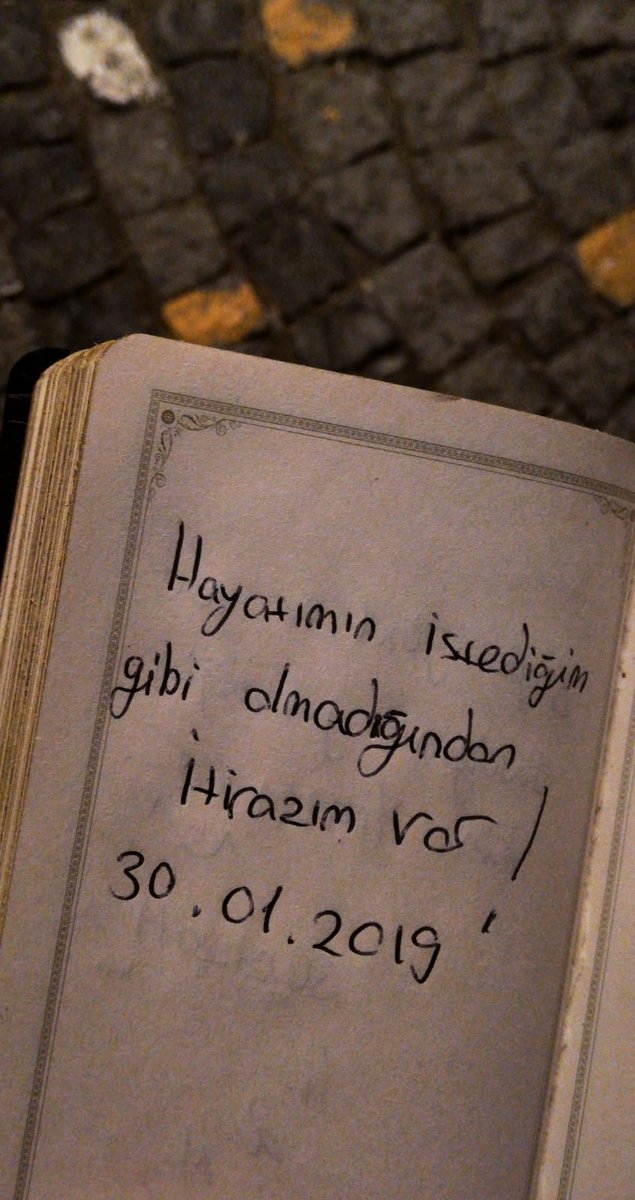 Hayatımın istediğim
gibi olmadığından
İtirazım var !
30.01.2019